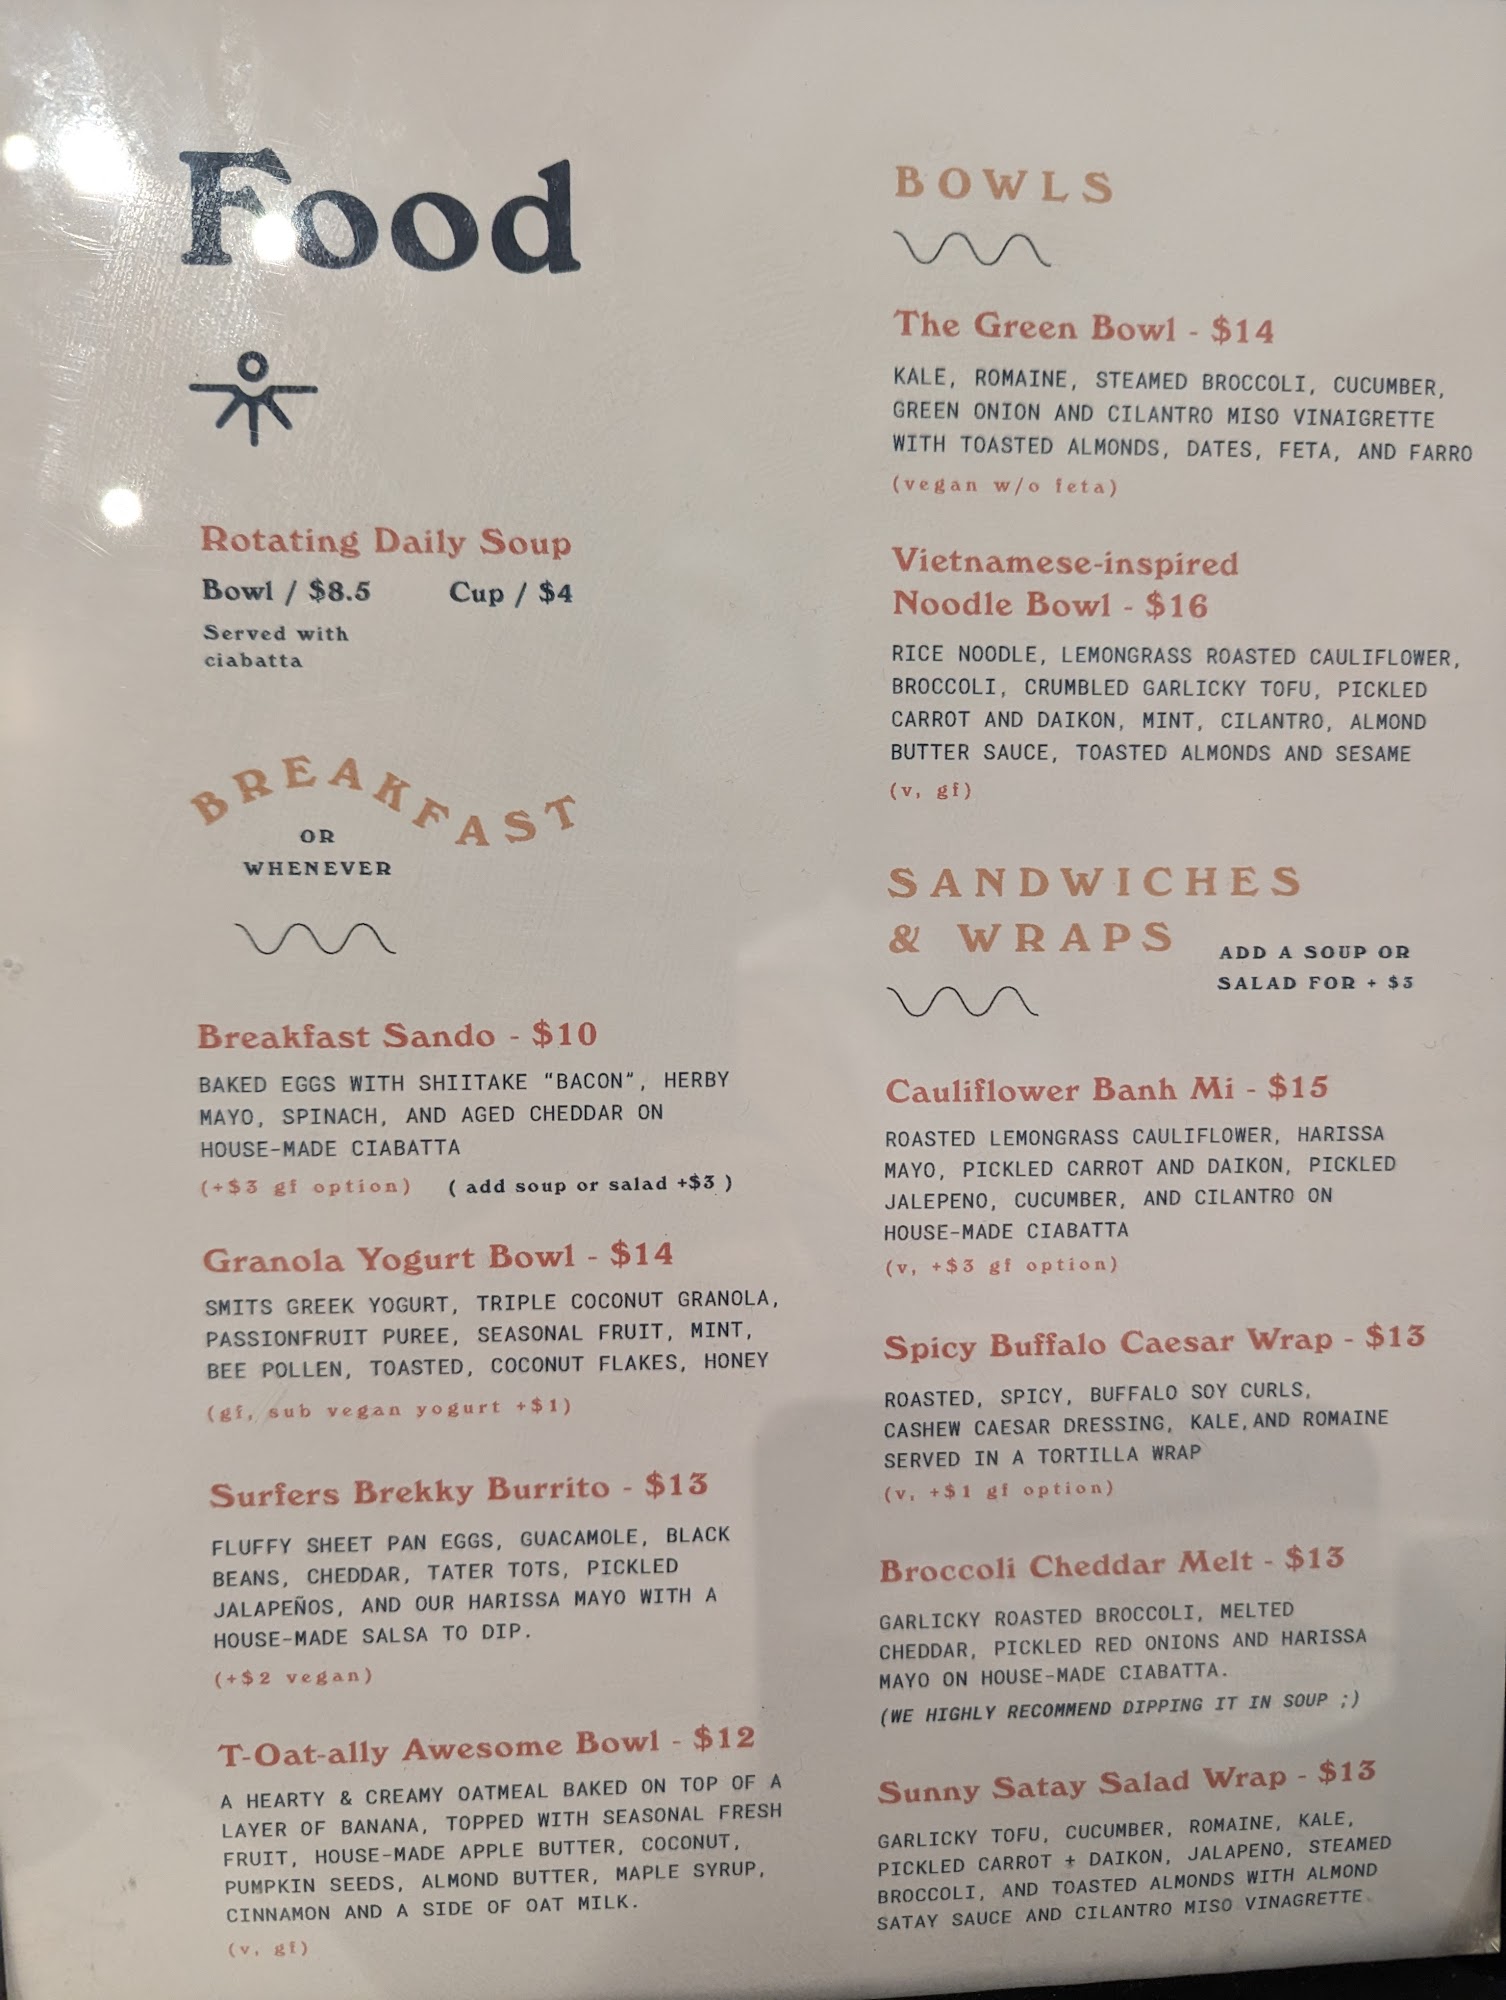 Food
Rotating Daily Soup
Bowl / $8.5 Cup / $4
Served with
ciabatta
BREAKFAST
OR
WHENEVER
Breakfast Sando - $10
BAKED EGGS WITH SHIITAKE "BACON", HERBY
MAYO, SPINACH, AND AGED CHEDDAR ON
HOUSE-MADE CIABATTA
(+$3 gf option) ( add soup or salad +$3 )
Granola Yogurt Bowl - $14
SMITS GREEK YOGURT, TRIPLE COCONUT GRANOLA,
PASSIONFRUIT PUREE, SEASONAL FRUIT, MINT,
BEE POLLEN, TOASTED, COCONUT FLAKES, HONEY
(gf, sub vegan yogurt +$1)
Surfers Brekky Burrito - $13
FLUFFY SHEET PAN EGGS, GUACAMOLE, BLACK
BEANS, CHEDDAR, TATER TOTS, PICKLED
JALAPEÑOS, AND OUR HARISSA MAYO WITH A
HOUSE-MADE SALSA TO DIP.
(+$2 vegan)
T-Oat-ally Awesome Bowl - $12
A HEARTY & CREAMY OATMEAL BAKED ON TOP OF A
LAYER OF BANANA, TOPPED WITH SEASONAL FRESH
FRUIT, HOUSE-MADE APPLE BUTTER, COCONUT,
PUMPKIN SEEDS, ALMOND BUTTER, MAPLE SYRUP,
CINNAMON AND A SIDE OF OAT MILK.
(v, gf)
BOWLS
The Green Bowl - $14
KALE, ROMAINE, STEAMED BROCCOLI, CUCUMBER,
GREEN ONION AND CILANTRO MISO VINAIGRETTE
WITH TOASTED ALMONDS, DATES, FETA, AND FARRO
(vegan w/o feta)
Vietnamese-inspired
Noodle Bowl - $16
RICE NOODLE, LEMONGRASS ROASTED CAULIFLOWER,
BROCCOLI, CRUMBLED GARLICKY TOFU, PICKLED
CARROT AND DAIKON, MINT, CILANTRO, ALMOND
BUTTER SAUCE, TOASTED ALMONDS AND SESAME
(v, gf)
SANDWICHES
& WRAPS
ADD A SOUP OR
SALAD FOR + $3
Cauliflower Banh Mi - $15
ROASTED LEMONGRASS CAULIFLOWER, HARISSA
MAYO, PICKLED CARROT AND DAIKON, PICKLED
JALEPENO, CUCUMBER, AND CILANTRO ON
HOUSE-MADE CIABATTA
(v, +$3 gf option)
Spicy Buffalo Caesar Wrap - $13
ROASTED, SPICY, BUFFALO SOY CURLS,
CASHEW CAESAR DRESSING, KALE, AND ROMAINE
SERVED IN A TORTILLA WRAP
(v, +$1 gf option)
Broccoli Cheddar Melt - $13
GARLICKY ROASTED BROCCOLI, MELTED
CHEDDAR, PICKLED RED ONIONS AND HARISSA
MAYO ON HOUSE-MADE CIABATTA.
(WE HIGHLY RECOMMEND DIPPING IT IN SOUP ;)
Sunny Satay Salad Wrap - $13
GARLICKY TOFU, CUCUMBER, ROMAINE, KALE,
PICKLED CARROT + DAIKON, JALAPENO, STEAMED
BROCCOLI, AND TOASTED ALMONDS WITH ALMOND
SATAY SAUCE AND CILANTRO MISO VINAGRETTE.